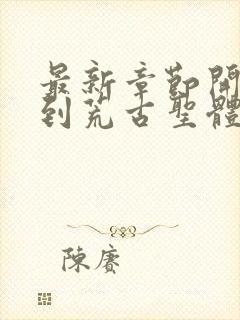 最新章節開
到荒古聖體
陳賡